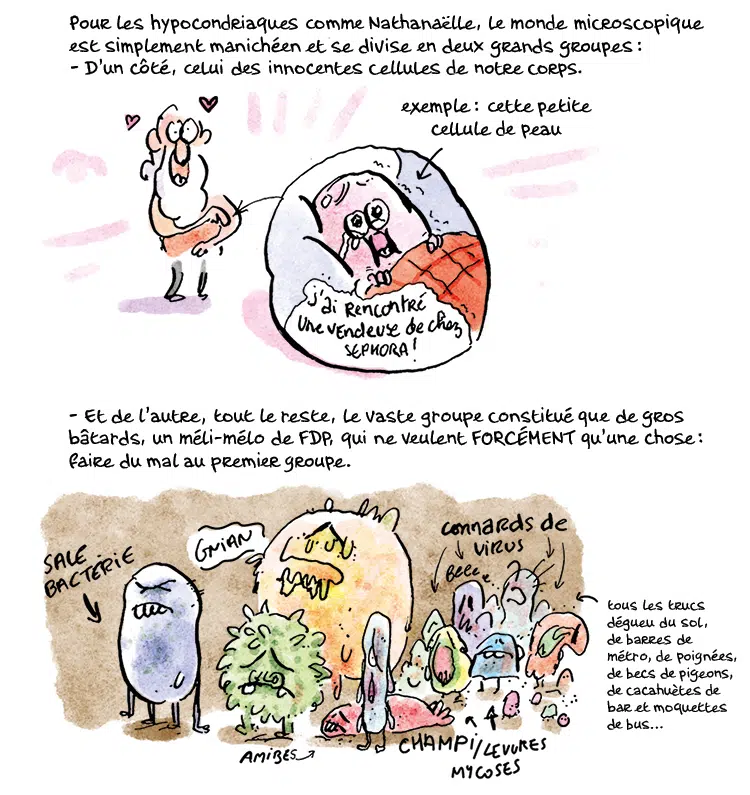 Pour les hypocondriaques comme Nathanaëlle, le monde microscopique
est simplement manichéen et se divise en deux grands groupes :
- D'un côté, celui des innocentes cellules de notre corps.
exemple : cette petite
cellule de peau
J'ai rencontré
une vendeuse de chez
SEPHORA !
- Et de l'autre, tout le reste, le vaste groupe constitué que de gros
bâtards, un méli-mélo de FDP, qui ne veulent FORCÉMENT qu'une chose :
faire du mal au premier groupe.
SALE
BACTÉRIE
GNIAN
connards de
virus
Beee
tous les trucs
dégueu du sol,
de barres de
métro, de poignées,
de becs de pigeons,
de cacahuètes de
bar et moquettes
de bus...
AMIBES
CHAMPI/LEVURES
MYCOSES